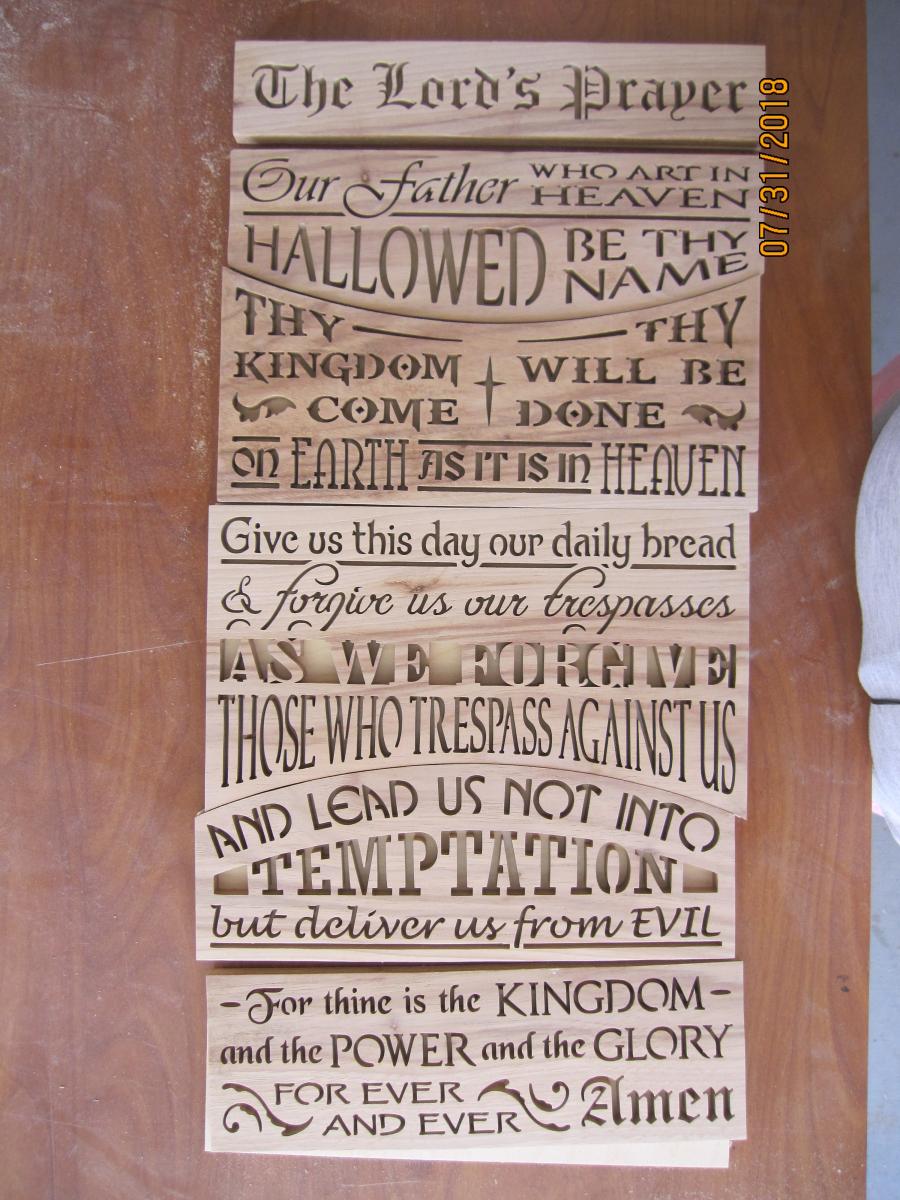 The Lord's Prayer
Our Father WHO ART IN HEAVEN
HALLOWED BE THY NAME
THY KINGDOM COME
THY WILL BE DONE
on EARTH AS IT IS in HEAVEN
Give us this day our daily bread
& forgive us our trespasses
AS WE FORGIVE
THOSE WHO TRESPASS AGAINST US
AND LEAD US NOT INTO
TEMPTATION
but deliver us from EVIL
- For thine is the KINGDOM -
and the POWER and the GLORY
FOR EVER AND EVER Amen
07/31/2018